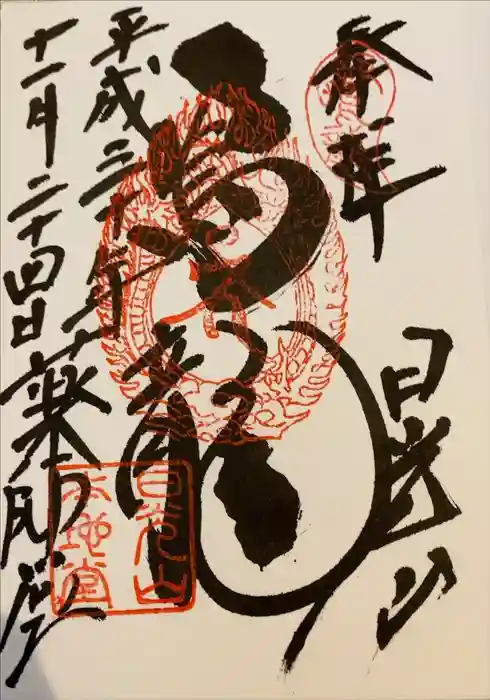 奉拝
日光山
鳴龍
平成三十年
十一月二十四日 薬師堂
日光山
本地堂